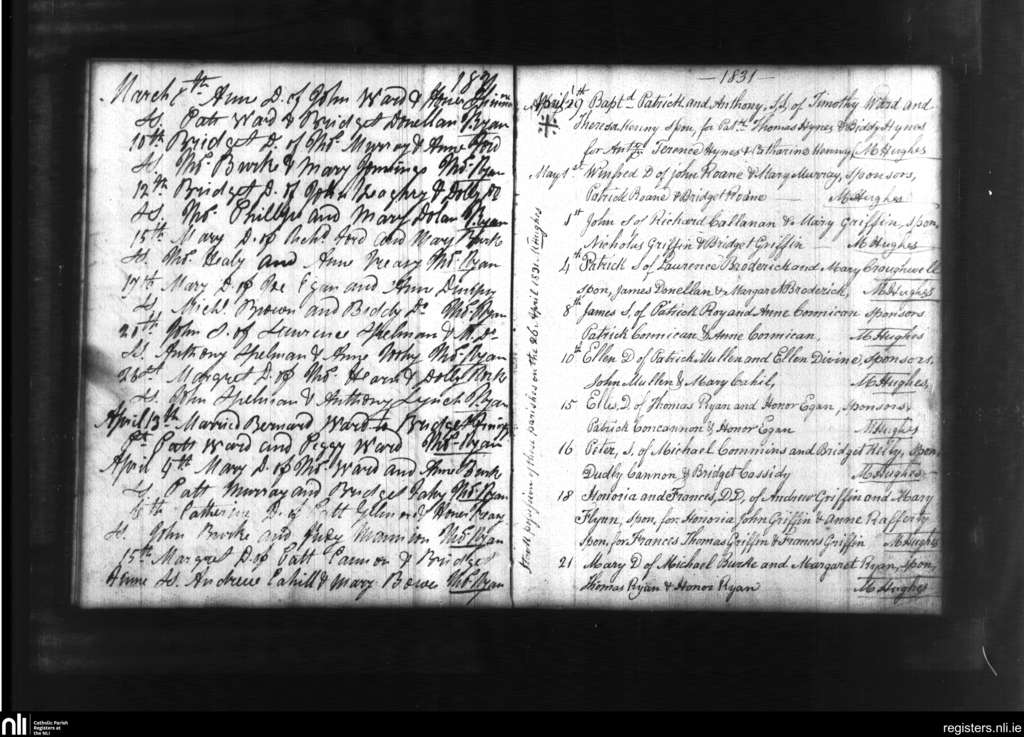 1831
March 8th Ann D. of John Ward & Honor
Ss. Patt Ward & Bridget Donellan Ryan
10th Bridget D. of Thos. Murray & Anne Ford
Ss. Thos. Burke & Mary Jennings Thos. Ryan
12th Bridget D. of John & Dolly Do
Ss. Thos. Phillips and Mary Dolan Ryan
15th Mary D. of Richd. Ford and Mary Burke
Ss. Thos. Healy and Anne Veary Thos. Ryan
17th Mary D. of Egan and Ann
Ss. Michl. Brown and Biddy Do Thos. Ryan
John S. of Lawrence Spelman & M. Do
Ss. Anthony Spelman & Anne Thos. Ryan
Margret D. of Thos. & Dolly Burke
Ss. John Spelman & Anthony Lynch Ryan
April 13th Married Bernard Ward to Bridget
Patt Ward and Peggy Ward Thos. Ryan
April 4th Mary D. of Thos. Ward and Anne Burke
Ss. Patt Murray and Bridget Fahy Thos. Ryan
Catherine D. of Patt & Honor Veary
Ss. John Burke and Judy Mannion Thos. Ryan
15th Margret D. of Patt Cannon & Bridget
Ss. Andrew Cahill & Mary Bowe Thos. Ryan
Took possession of these parishes on the 26 April 1831. M Hughes
—1831—
April 29th Baptd. Patrick and Anthony, S,S, of Timothy Ward and
Theresa Henny Spon, for Patk. Thomas Hynes & Biddy Hynes
for Anty. Terence Hynes & Catharine Henny, M Hughes
May 1st Winifred D of John Roane & Mary Murray, Sponsors,
Patrick Roane & Bridget Roane M Hughes
1st John S of Richard Callanan & Mary Griffin, Spon,
Nicholas Griffin & Bridget Griffin M Hughes
4th Patrick S of Laurence Broderick and Mary Croughwell
Spon, James Donellan & Margaret Broderick, M Hughes
8th James S, of Patrick Roy and Anne Cormican Sponsors
Patrick Cormican & Anne Cormican, M Hughes
10th Ellen D of Patrick Mullen and Ellen Divine, Sponsors,
John Mullen & Mary Cahil, M Hughes,
15 D. of Thomas Ryan and Honor Egan, Sponsors
Patrick Concannon & Honor Egan M Hughes
16 Peter, S. of Michael Commins and Bridget Kelly, Spon
Dudly Cannon & Bridget Cassidy M Hughes
18 Honoria and Frances, D,D, of Andrew Griffin and Mary
Flynn, Spon, for Honoria John Griffin & Anne Rafferty
Spon, for Frances Thomas Griffin & Frances Griffin M Hughes
21 Mary D of Michael Burke and Margaret Ryan, Spon,
Thomas Ryan & Honor Ryan M Hughes
nli Catholic Parish
Registers at
the NLI
registers.nli.ie